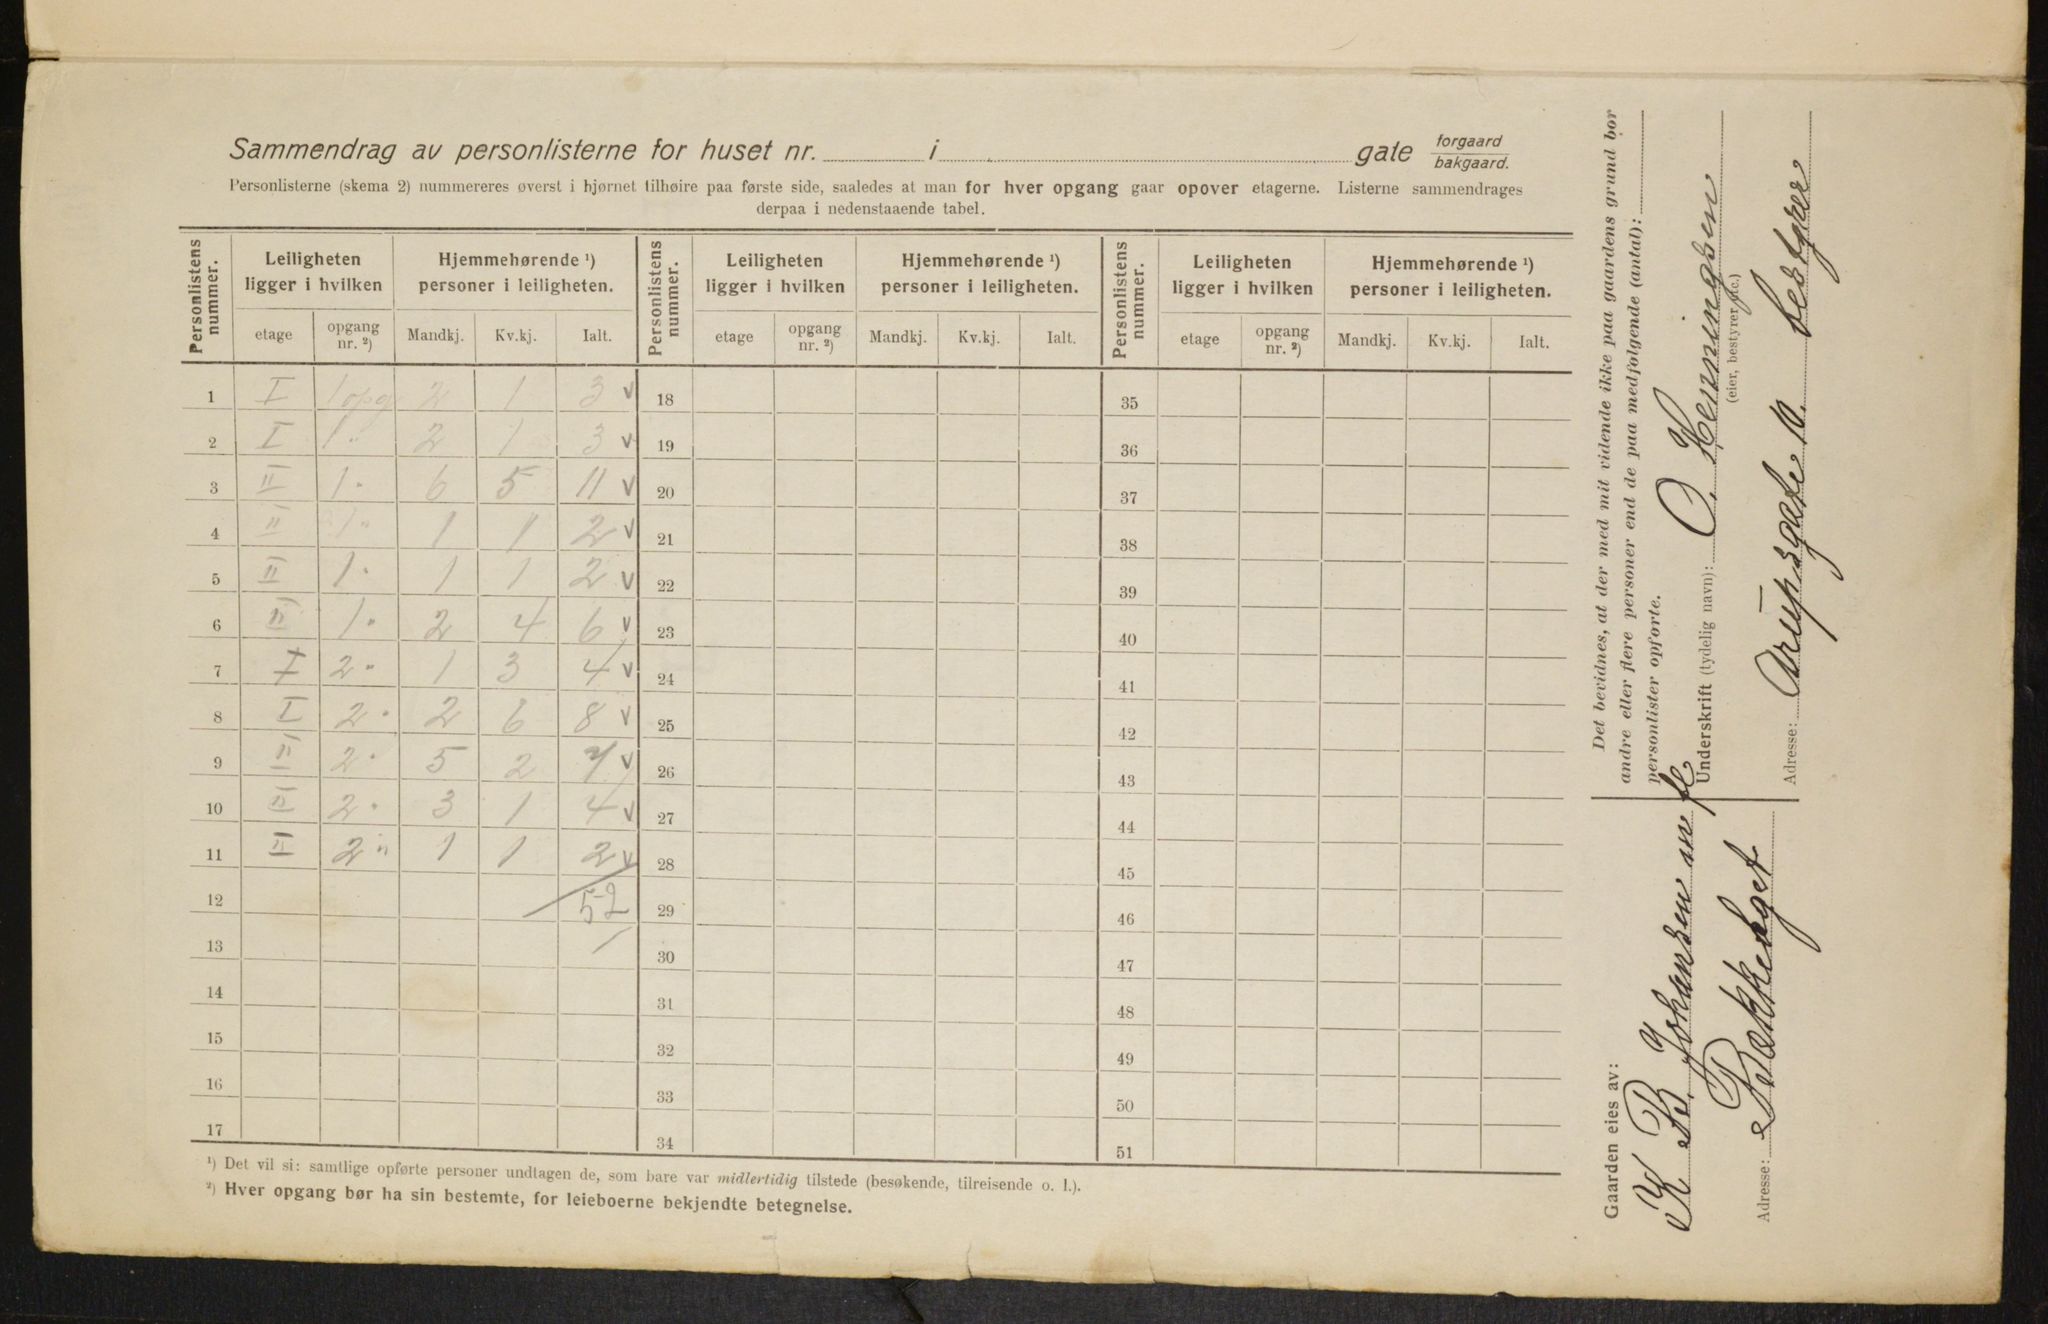 Sammendrag av personlisterne for huset nr. i gate forgaard bakgaard.
Personlisterne (skema 2) nummereres øverst i hjørnet tilhøire paa første side, saaledes at man for hver opgang gaar opover etagerne. Listerne sammendrages
derpaa i nedenstaaende tabel.
Personlistens nummer. Leiligheten ligger i hvilken Hjemmehørende ¹) personer i leiligheten. Personlistens nummer. Leiligheten ligger i hvilken Hjemmehørende ¹) personer i leiligheten. Personlistens nummer. Leiligheten ligger i hvilken Hjemmehørende ¹) personer i leiligheten.
etage opgang nr. ²) Mandkj. Kv.kj. Ialt. etage opgang nr. ²) Mandkj. Kv.kj. Ialt. etage opgang nr. ²) Mandkj. Kv.kj. Ialt.
1 I 1 opg 2 1 3 v 18 35
2 I 1 " 2 1 3 v 19 36
3 II 1 " 6 5 11 v 20 37
4 II 1 " 1 1 2 v 21 38
5 II 1 " 1 1 2 v 22 39
6 II 1 " 2 4 6 v 23 40
7 I 2 " 1 3 4 v 24 41
8 I 2 " 2 6 8 v 25 42
9 II 2 " 5 2 7 v 26 43
10 II 2 " 3 1 4 v 27 44
11 II 2 " 1 1 2 v 28 45
12 52 29 46
13 30 47
14 31 48
15 32 49
16 33 50
17 34 51
¹) Det vil si: samtlige opførte personer undtagen de, som bare var midlertidig tilstede (besøkende, tilreisende o. l.).
²) Hver opgang bør ha sin bestemte, for leieboerne bekjendte betegnelse.
Det bevidnes, at der med mit vidende ikke paa gaardens grund bor
andre eller flere personer end de paa medfølgende (antal):
personlister opførte.
Underskrift (tydelig navn): O. Henningsen
(eier, bestyrer etc.)
Adresse: Arupsgate 10. bestyrer
Gaarden eies av:
K B. Johansen m fl
Adresse: Bakkehgt